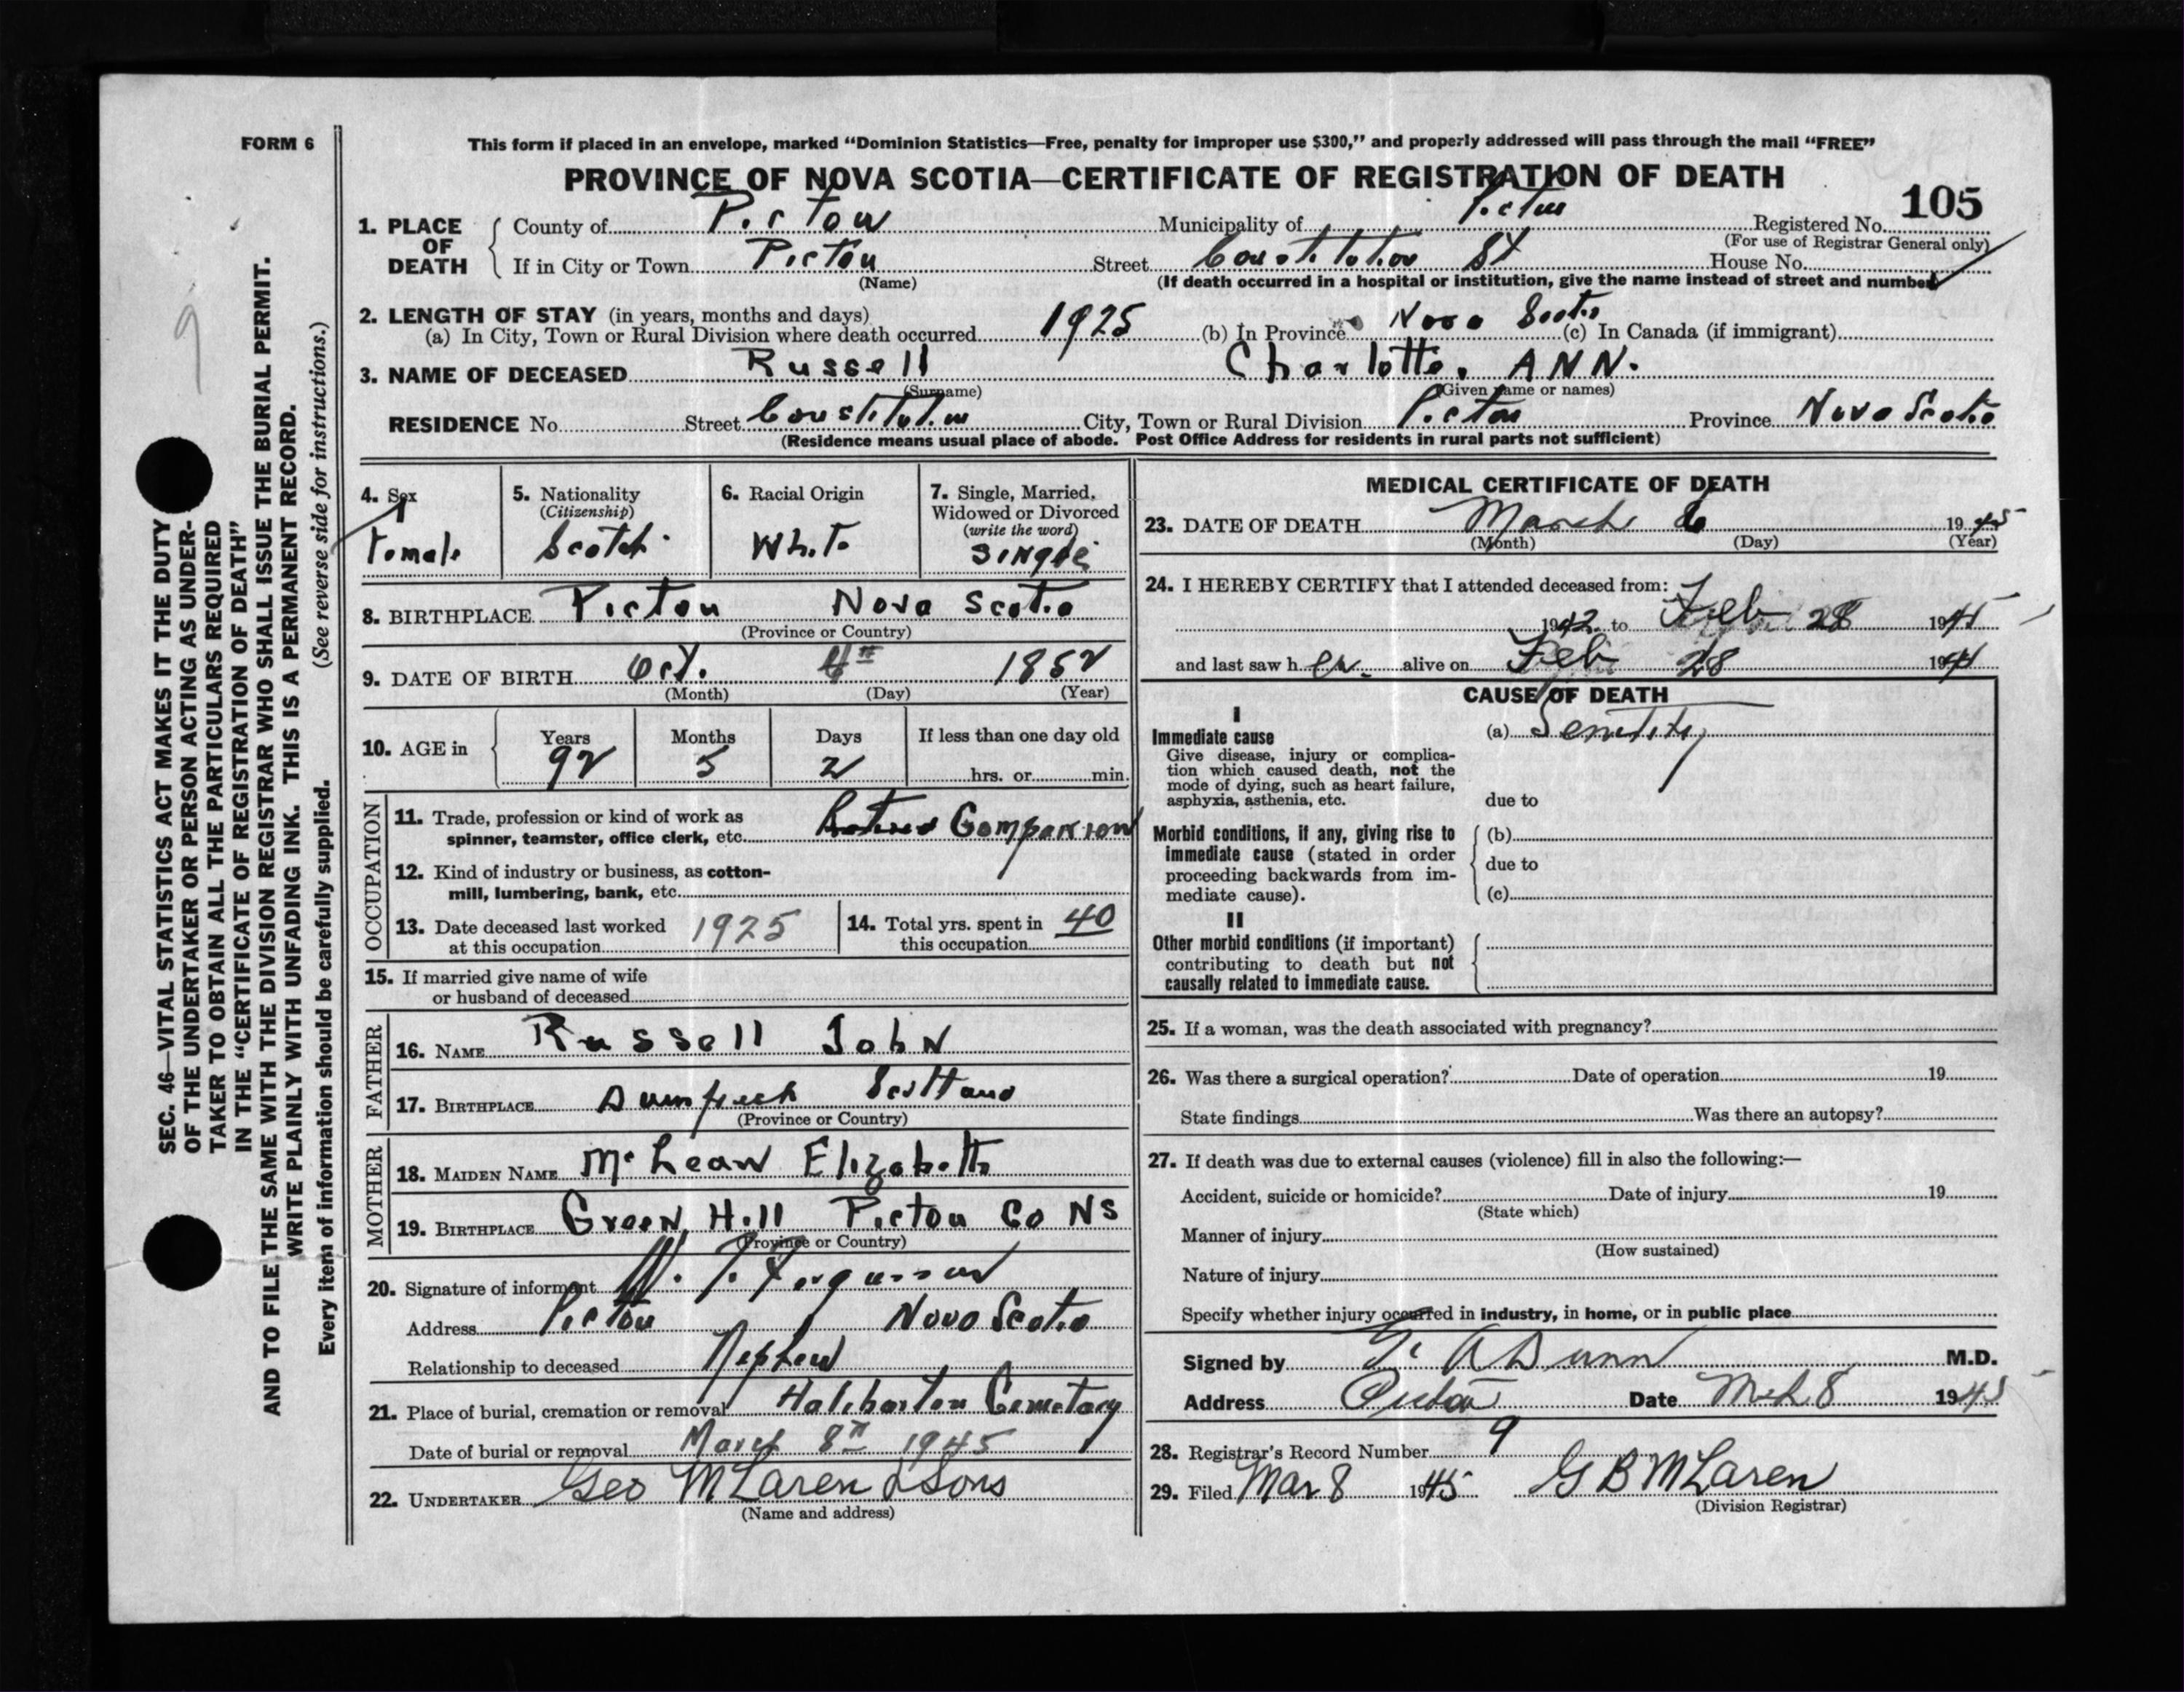 FORM 6
This form if placed in an envelope, marked “Dominion Statistics—Free, penalty for improper use $300,” and properly addressed will pass through the mail “FREE”
PROVINCE OF NOVA SCOTIA—CERTIFICATE OF REGISTRATION OF DEATH
105
1. PLACE OF DEATH County of Pictou Municipality of Pictou Registered No.
(For use of Registrar General only)
If in City or Town Pictou Street Constitution St House No.
(Name) (If death occurred in a hospital or institution, give the name instead of street and number)
2. LENGTH OF STAY (in years, months and days)
(a) In City, Town or Rural Division where death occurred 1925 (b) In Province Nova Scotia (c) In Canada (if immigrant)
3. NAME OF DECEASED Russell Charlotte. ANN.
(Surname) (Given name or names)
RESIDENCE No. Street Constitution City, Town or Rural Division Pictou Province Nova Scotia
(Residence means usual place of abode. Post Office Address for residents in rural parts not sufficient)
4. Sex
Female
5. Nationality
(Citizenship)
Scotch
6. Racial Origin
White
7. Single, Married,
Widowed or Divorced
(write the word)
Single
8. BIRTHPLACE Pictou Nova Scotia
(Province or Country)
9. DATE OF BIRTH Oct. 4th 1852
(Month) (Day) (Year)
10. AGE in Years Months Days If less than one day old
92 5 2 hrs. or min.
OCCUPATION
11. Trade, profession or kind of work as
spinner, teamster, office clerk, etc. Retired Companion
12. Kind of industry or business, as cotton-
mill, lumbering, bank, etc.
13. Date deceased last worked
at this occupation 1925
14. Total yrs. spent in
this occupation 40
15. If married give name of wife
or husband of deceased
FATHER
16. NAME Russell John
17. BIRTHPLACE Scotland
(Province or Country)
MOTHER
18. MAIDEN NAME McLean Elizabeth
19. BIRTHPLACE Green Hill Pictou Co NS
(Province or Country)
20. Signature of informant Ferguson
Address Pictou Nova Scotia
Relationship to deceased Nephew
21. Place of burial, cremation or removal Haliburton Cemetary
Date of burial or removal March 8th 1945
22. UNDERTAKER Geo McLaren & Sons
(Name and address)
MEDICAL CERTIFICATE OF DEATH
23. DATE OF DEATH March 6 1945
(Month) (Day) (Year)
24. I HEREBY CERTIFY that I attended deceased from:
1942 to Feb 28 1945
and last saw h er alive on Feb 28 194
CAUSE OF DEATH
I
Immediate cause
Give disease, injury or complica-
tion which caused death, not the
mode of dying, such as heart failure,
asphyxia, asthenia, etc.
(a) Senility
due to
Morbid conditions, if any, giving rise to
immediate cause (stated in order
proceeding backwards from im-
mediate cause).
(b)
due to
(c)
II
Other morbid conditions (if important)
contributing to death but not
causally related to immediate cause.
25. If a woman, was the death associated with pregnancy?
26. Was there a surgical operation? Date of operation 19
State findings Was there an autopsy?
27. If death was due to external causes (violence) fill in also the following:—
Accident, suicide or homicide? Date of injury 19
(State which)
Manner of injury
(How sustained)
Nature of injury
Specify whether injury occurred in industry, in home, or in public place
Signed by A Dunn M.D.
Address Pictou Date Mch 8 1945
28. Registrar's Record Number 9
29. Filed Mar 8 1945 G B McLaren
(Division Registrar)
9
SEC. 46—VITAL STATISTICS ACT MAKES IT THE DUTY
OF THE UNDERTAKER OR PERSON ACTING AS UNDER-
TAKER TO OBTAIN ALL THE PARTICULARS REQUIRED
IN THE “CERTIFICATE OF REGISTRATION OF DEATH”
AND TO FILE THE SAME WITH THE DIVISION REGISTRAR WHO SHALL ISSUE THE BURIAL PERMIT.
WRITE PLAINLY WITH UNFADING INK. THIS IS A PERMANENT RECORD.
Every item of information should be carefully supplied. (See reverse side for instructions.)